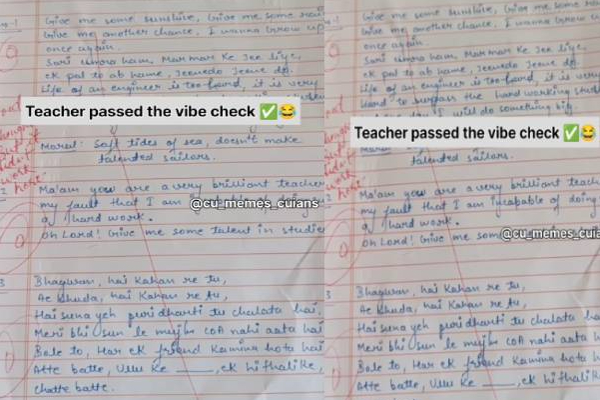 Give me some sunshine, Give me some rain
Give me another chance, I wanna Grow up
once again.
Sari umora ham, Mar mar Ke Jee liye,
ek pal to ab hame, Jeenedo Jeene do.
Life of an engineer is too hard, it is very
Teacher passed the vibe check ✅😂
Moral: Soft tides of sea, doesn't make
talented sailors.
Ma'am you are a very brilliant teacher
my fault that I am
@cu_memes_cuians
of hard work.
Oh Lord! Give me some talent in studies
3
Bhagwan, hai Kahan re tu,
Ae Khuda, hai Kahan re tu,
Hai suna yeh puri dharti tu chalata hai,
Meri bhi sun le mujhe COA nahi aata hai
Bole to, Har ek friend Kamina hota hai
Atte batte, Ullu Ke ____, ek hi thali ke,
chatte batte.
Give me some sunshine, Give me some
Give me another chance, I wanna Grow u
once again.
Sari umora ham, Mar mar Ke Jee liye,
ek pal to ab hame, Jeenedo Jeene do.
Life of an engineer is too hard, it is very
hard to surpass the hard working stud
I will do something big.
Teacher passed the vibe check ✅😂
talented sailors.
Ma'am you are a very brilliant teach
my fault that I am incapable of doing
of hard work.
Oh Lord! Give me some
@cu_memes_cuia
3
Bhagwan, hai Kahan re tu,
Ae Khuda, hai Kahan re tu,
Hai suna yeh puri dharti tu chalata ha
Meri bhi sun le mujhe COA nahi aata h
Bole to, Har ek friend Kamina hota h
Atte batte, Ullu Ke ____, ek hi thali k